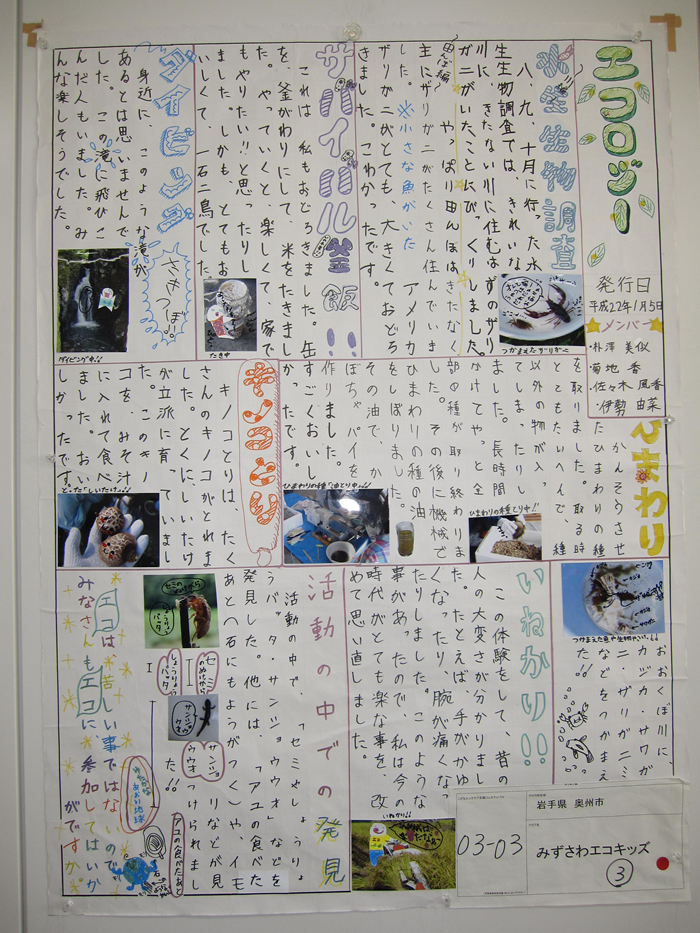 エコロジー
発行日
平成22年1月5日
メンバー
・朴澤 美似
・菊地 香
・佐々木 風香
・伊勢 由菜
水生生物調査
八、九、十月に行った水
生生物調査では、きれいな
川に、きたない川に住むはずのザリ
ガニがいたことにびっくりしました。
田んぼ編〜
やっぱり田んぼはきたなく
主にザリガニがたくさん住んでいま
した。※小さな魚がいた
アメリカ
ザリガニがとても、大きくておどろ
きました。こわかったです。
つかまえたザリガニ〜
サバイバル釜飯!!
これは、私もおどろきました。缶
を、釜がわりにして、米をたきまし
た。やっていくと、楽しくて、家で
もやりたい!!と思ったりし
ました。しかも、とてもお
いしくて、一石二鳥でした。
たき中
ダイビング
身近に、このような滝が
あるとは思いませんで
した。この滝に飛びこ
んだ人もいました。み
んな楽しそうでした。
さきつぼ!!
ダイビング中!!
ひまわり
かんそうさせ
たひまわりの種
を取りました。取る時
とてもたいへんで、種
以外の物が入っ
てしまったりし
ました。長時間
かけてやっと全
部の種が取り終わりま
した。その後に機械で
ひまわりの種の油
をしぼりました。
その油で、か
ぼちゃパイを
作りました。
すごくおいし
かったです。
ひまわりの種とり中!!
ひまわりの種「油とり中」!!
キノコとり
キノコとりは、たく
さんのキノコがとれま
した。とくに、しいたけ
が立派に育っていまし
た。このキノ
コを、みそ汁
に入れて食べ
ました。おい
しかったです。
とった「しいたけ」!!
つかまえた魚や生物やい!!
おおくぼ川に、
カジカ・サワガ
ニ・ザリガニミ
などをつかまえ
た!!
いねかり!!
この体験をして、昔の
人の大変さが分かりまし
た。たとえば、手がかゆ
くなったり、腕が痛くな
たりしました。このような
事があったので、私は今の
時代がとても楽な事を、改
めて思い直しました。
いねかり!!
活動の中での発見
活動の中で、セミやしょうりょ
うバッタ・サンショウウオ」などを
発見した。他には、「アユの食べた
あと(石にもようがつく)や、イモ
リなどが見
つけられまし
た!!
セミのぬけがら
しょうりょうバッタ
サンショウウオ
アユの食べたあと
石
エコは、苦しい事ではないので
みなさんもエコに参加してはいか
がですか。
岩手県 奥州市
03-03
みずさわエコキッズ
③